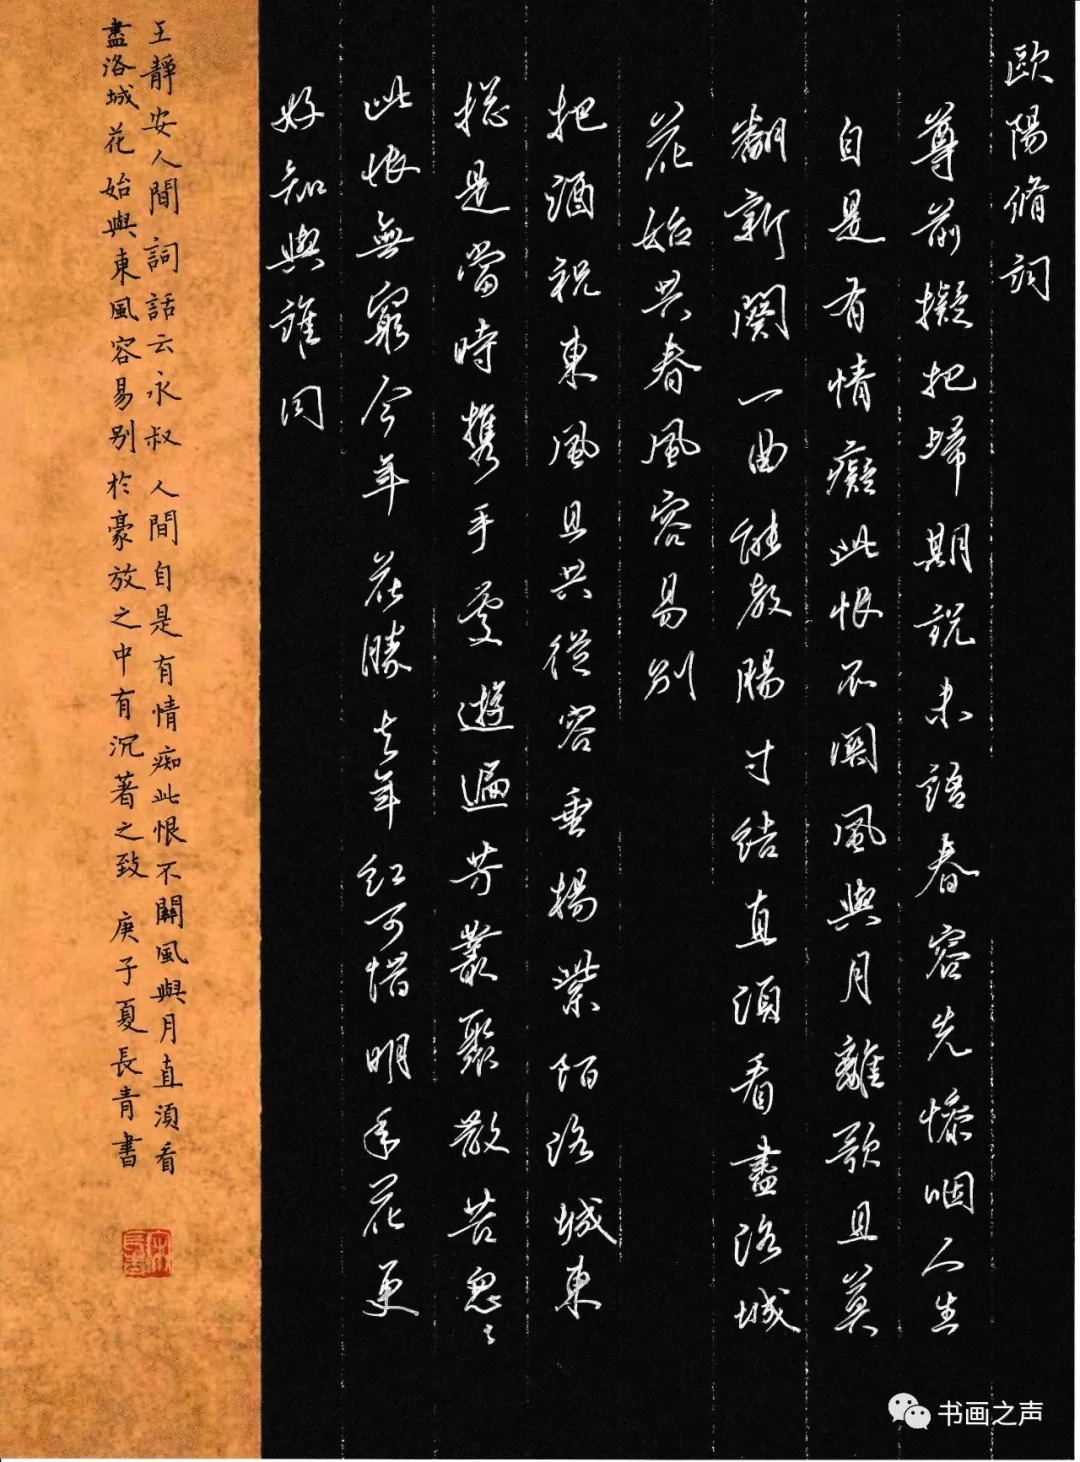 歐陽脩詞
尊前擬把歸期說未語春容先慘咽人生
自是有情癡此恨不關風與月離歌且莫
翻新闋一曲能教腸寸結直須看盡洛城
花始共春風容易別
把酒祝東風且共從容垂楊紫陌洛城東
摠是當時携手處遊遍芳叢聚散苦怱〻
此恨無窮今年花勝去年紅可惜明年花更
好知與誰同
王靜安人間詞話云永叔人間自是有情痴此恨不關風與月直須看
盡洛城花始與東風容易别於豪放之中有沉著之致 庚子夏長青書
书画之声